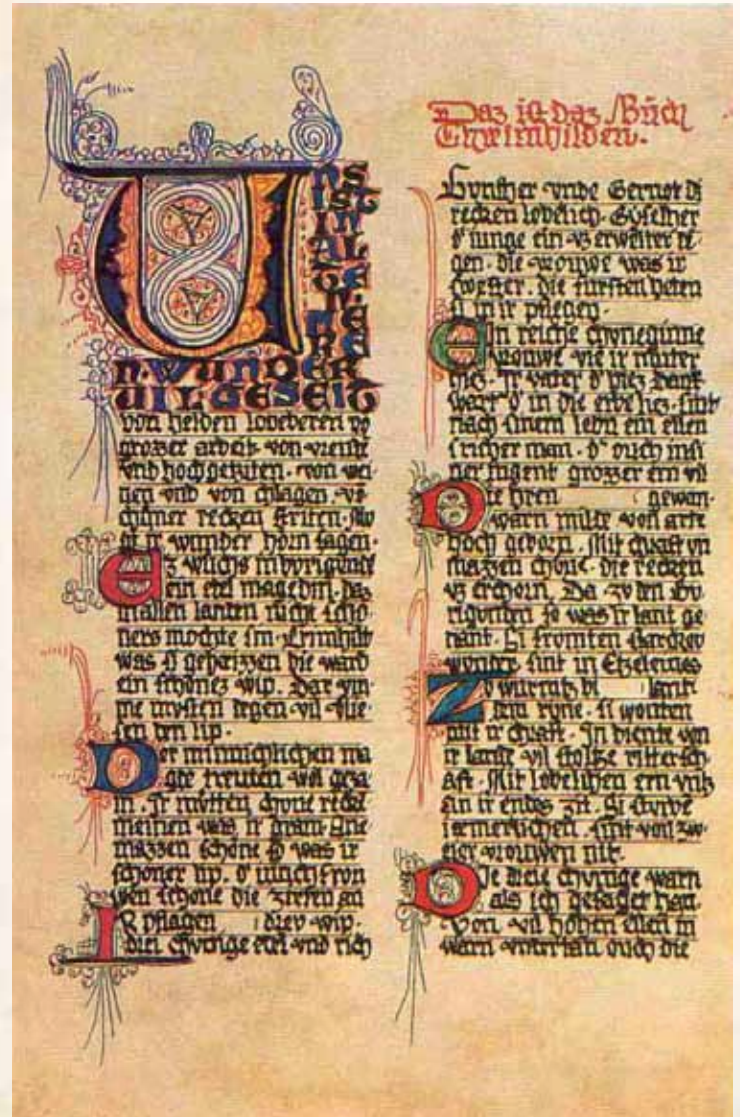 UNS
IST
IN
AL
TE
N·
ME
RE
N·WUNDER
UIL GESEIT
von helden lobeberen vō
grozzer arbeit· von vreude
vnd hochgeziten· von wei
nen vnd von chlagen· vō
chuner recken striten·
ir wunder horn sagen·
Ez wuchs
ein edel magedin· daz
in allen landen nicht scho
ners mochte sin·
was si geheizzen die ward
ein schonez wip· Dar vm
me mvsten degen vil vlie
sen den lip·
Der minnichlichen ma
gde treuten wol geza
m· Ir mvtten chvne recke
was ir gram· Ane
mazzen schone was ir
schoner lip· vron
wen schone die
pflagen drev wip·
drei chvnige edel vnd rich
Daz ist daz Bůch
Chreimhilden·
Gvnther vnde Gernot di
recken lobelich· Gyselher
d' iunge ein vz erwelter de
gen· die vrouwe was ir
swester· die fursten heten
si in ir pflegen·
Ein reiche chvneginne
vrouwe ir muter
hiez· Ir vater d' hiez Dank
wart d' in die erbe liez· sint
nach sinem lebn ein ellen
s richer man· d' ouch in si
ner tugent grozzer ern vil
Die hren gewan·
warn milte von arte
hoch geborn· Mit chraft vn
mazzen chvne· die recken
vz erchorn· Da zv den Bv
rigonden so was ir lant ge
nant· Si frvmten starckev
wunder sint in Etzeleines
Zv wurmtz bi lant·
dem ryne· si wonten
mit ir chraft· In diente von
ir lande vil stoltze rittersch
aft· Mit lobelichen ern vntz
an ir endes zit· Si sturbe
iemerlichen· sint von zw
eier vrouwen nit·
Die dreie chvnige warn
als ich gesaget han·
Von vil hohen ellen in
warn vntertan ouch die